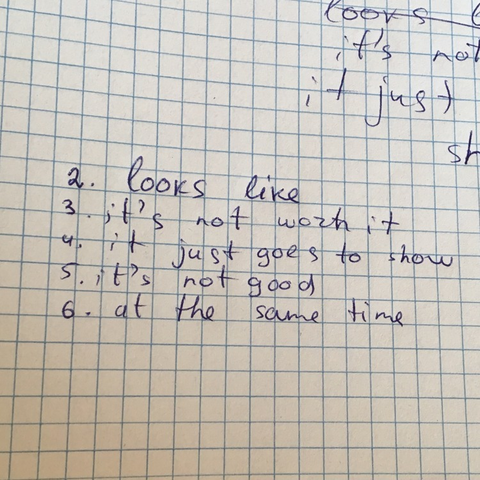 looks
it's not
it just
sh
2. looks like
3. it's not worh it
4. it just goes to show
5. it's not good
6. at the same time